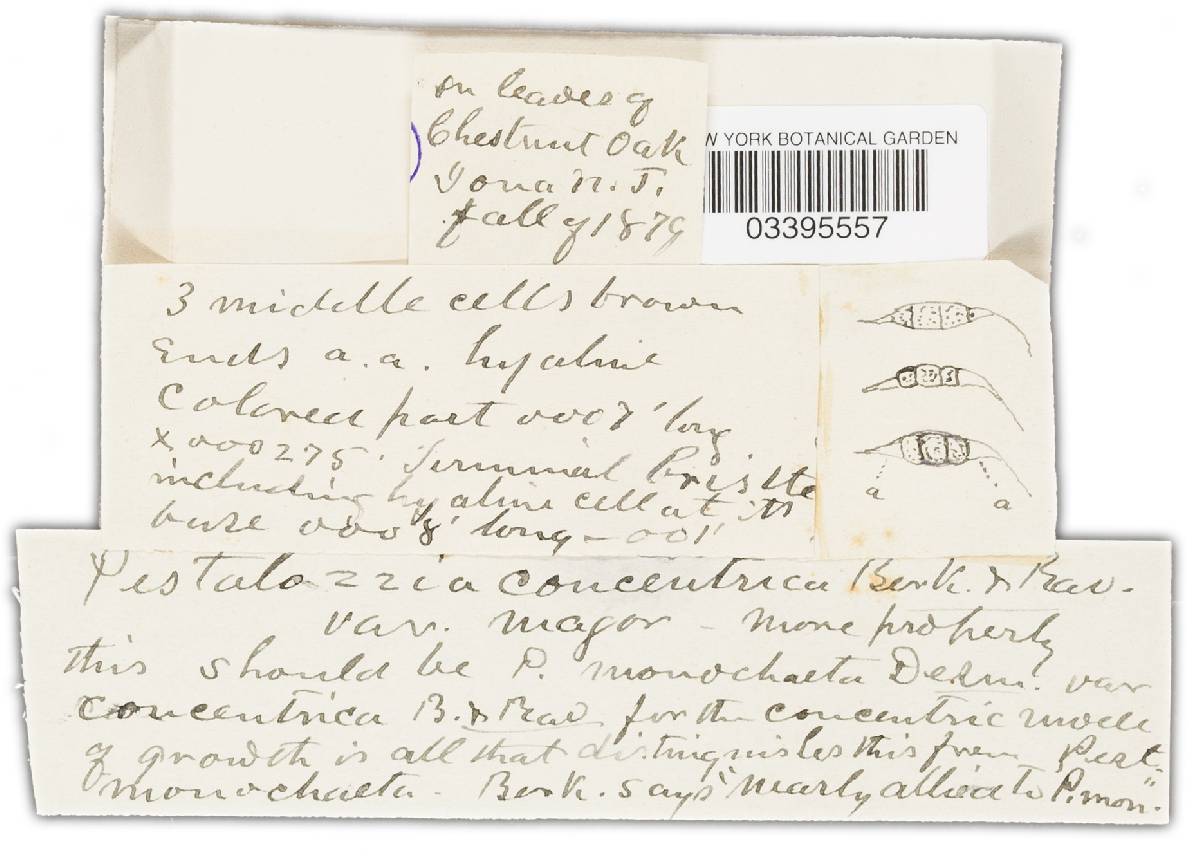 on leaves of
Chestnut Oak
Iona N. J.
fall of 1879
W YORK BOTANICAL GARDEN
03395557
3 middle cells brown
Ends a.a. hyaline
Colored part 0007' long
x 000275' Terminal bristle
including hyaline cell at its
base 0008' long - 001'
a
a
Pestalozzia concentrica Berk. & Rav.
var. magor - more properly
this should be P. monochaeta Desm. var
concentrica B. & Rav for the concentric mode
of growth is all that distinguishes this from Pest.
monochaeta - Berk. says "nearly allied to P. mon."